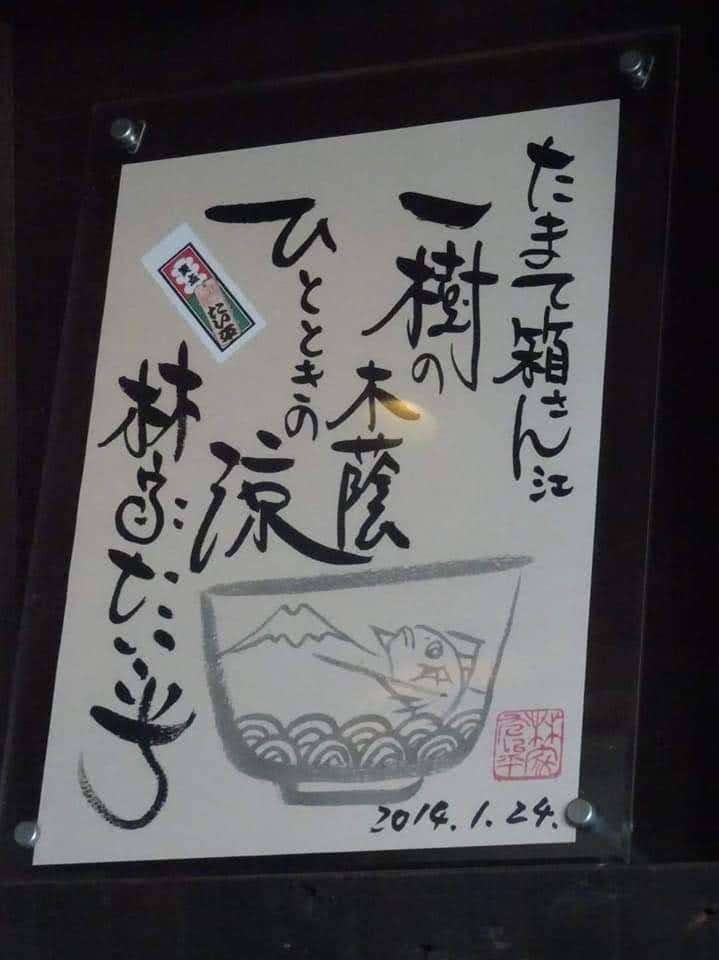 たまて箱さん江
一樹の
木蔭
ひとときの
涼
林家たい平
2014.1.24.
林家たい平